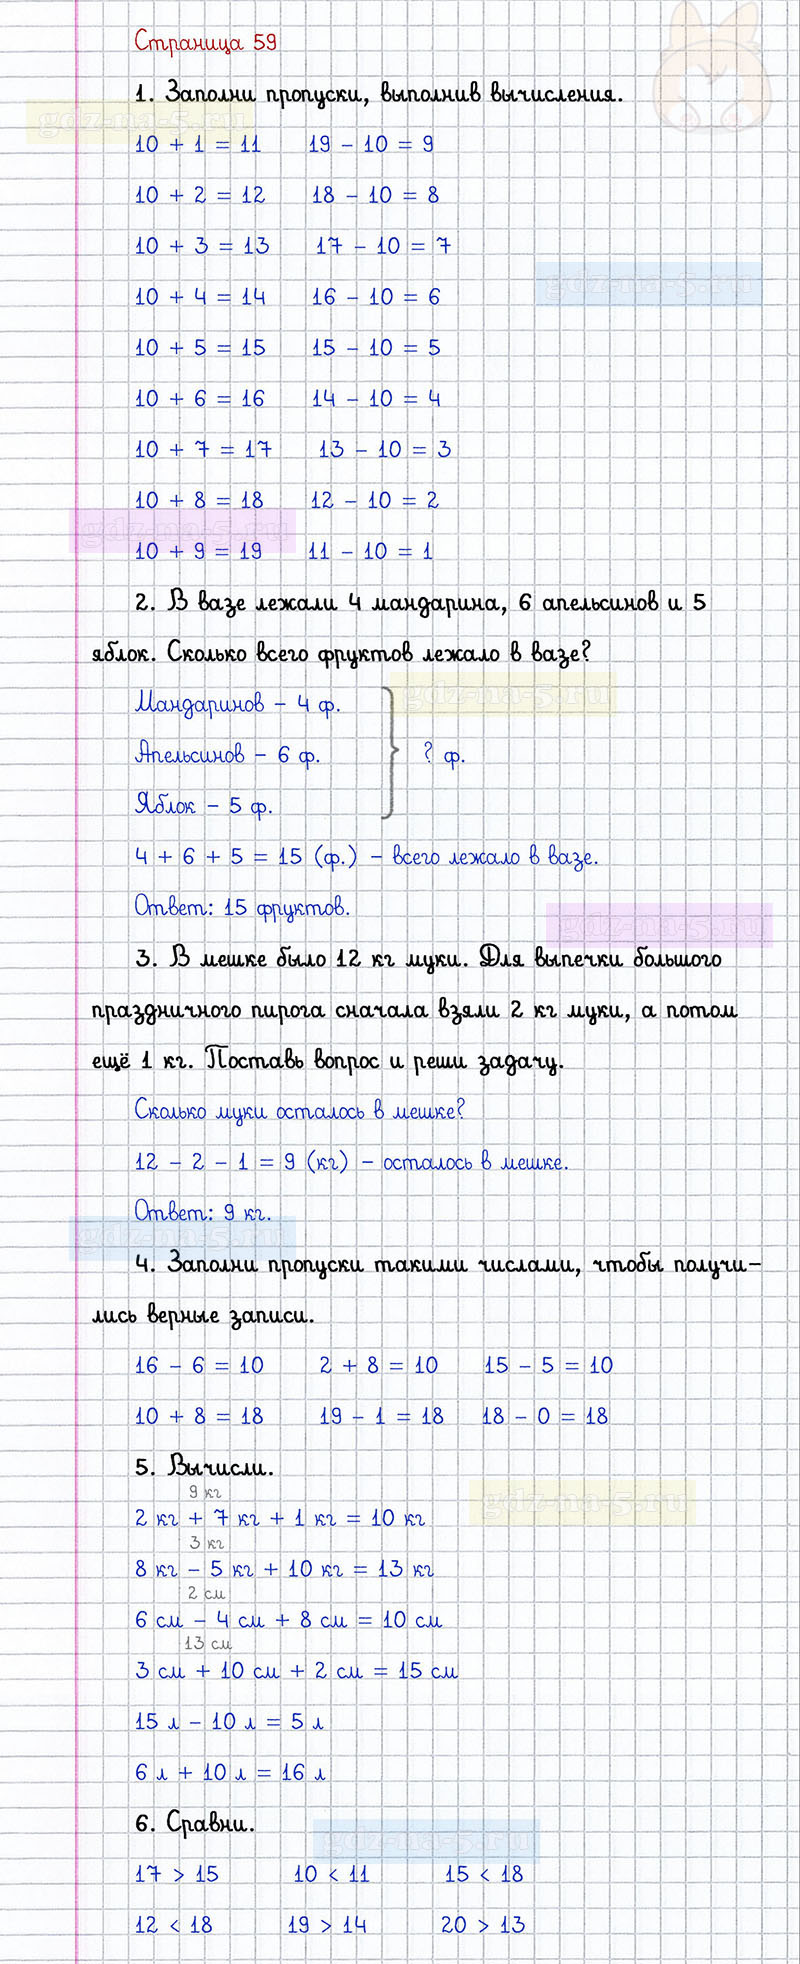 Страница 59
1. Заполни пропуски, выполнив вычисления.
gdz-na-5.ru
10 + 1 = 11 19 - 10 = 9
10 + 2 = 12 18 - 10 = 8
10 + 3 = 13 17 - 10 = 7
gdz-na-5.ru
10 + 4 = 14 16 - 10 = 6
10 + 5 = 15 15 - 10 = 5
10 + 6 = 16 14 - 10 = 4
10 + 7 = 17 13 - 10 = 3
10 + 8 = 18 12 - 10 = 2
gdz-na-5.ru
10 + 9 = 19 11 - 10 = 1
2. В вазе лежали 4 мандарина, 6 апельсинов и 5
яблок. Сколько всего фруктов лежало в вазе?
gdz-na-5.ru
Мандаринов – 4 ф.
Апельсинов – 6 ф. ? ф.
Яблок – 5 ф.
4 + 6 + 5 = 15 (ф.) – всего лежало в вазе.
Ответ: 15 фруктов.
gdz-na-5.ru
3. В мешке было 12 кг муки. Для выпечки большого
праздничного пирога сначала взяли 2 кг муки, а потом
ещё 1 кг. Поставь вопрос и реши задачу.
Сколько муки осталось в мешке?
12 - 2 - 1 = 9 (кг) – осталось в мешке.
Ответ: 9 кг.
gdz-na-5.ru
4. Заполни пропуски такими числами, чтобы получи-
лись верные записи.
16 - 6 = 10 2 + 8 = 10 15 - 5 = 10
10 + 8 = 18 19 - 1 = 18 18 - 0 = 18
5. Вычисли.
9 кг
gdz-na-5.ru
2 кг + 7 кг + 1 кг = 10 кг
3 кг
8 кг - 5 кг + 10 кг = 13 кг
2 см
6 см - 4 см + 8 см = 10 см
13 см
3 см + 10 см + 2 см = 15 см
15 л - 10 л = 5 л
6 л + 10 л = 16 л
6. Сравни.
gdz-na-5.ru
17 > 15 10 < 11 15 < 18
12 < 18 19 > 14 20 > 13